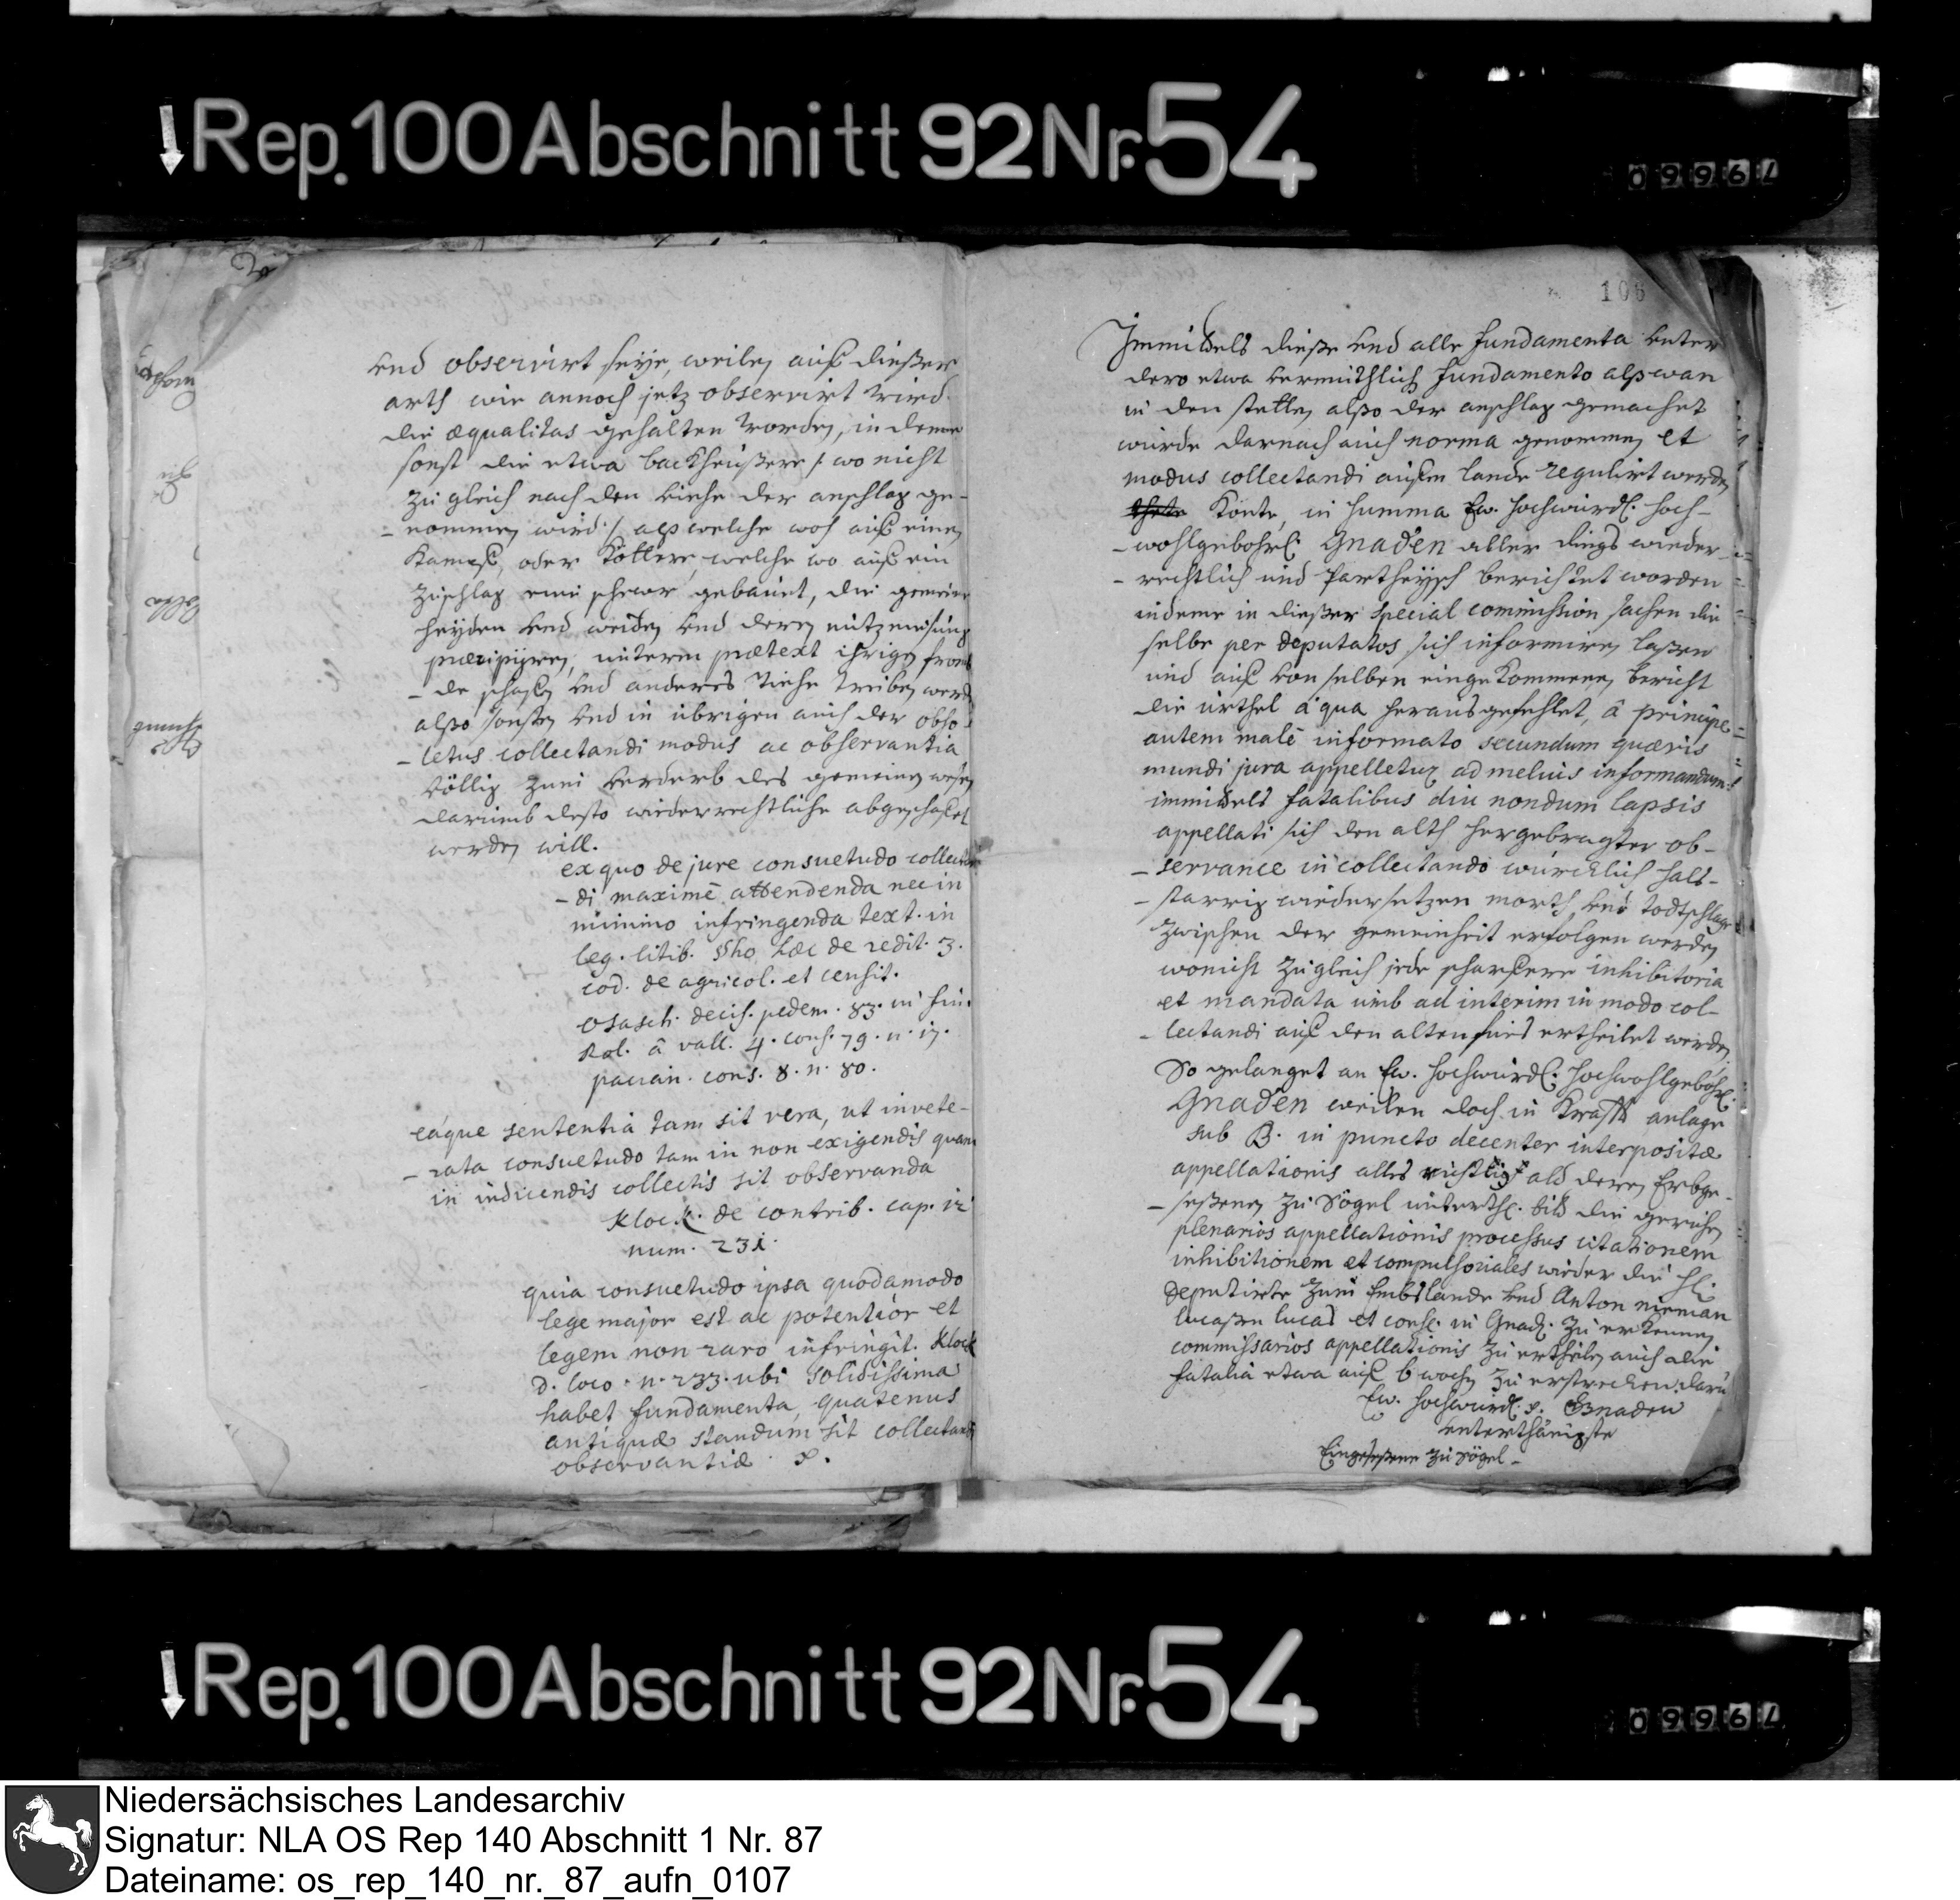 ↓Rep.100Abschnitt92Nr.54
09967
und observirt seye, weilen auß dießer
arth wie annoch jetz observirt wird
die æqualitas gehalten worden, in deme
sonst die etwa backheußere /: wo nicht
zu gleich nach den viehe der anschlag ge-
- nommen wird :/ alß welche woh auß einen
Kampf, oder Köttere, welche wo auß ein
zuschlag eine schewr gebauet, die gemeine
heyden und weiden und deren nutzneisung
præcipijren, unterm prætext ihrigen fremb
- de schafen und anderes viehe treiben werden
alßo sonsten und in übrigen auch der obso-
- letus collectandi modus ac observantia
völlig zum verderb des gemeinen wesen
darumb desto wiederrechtliche abgeschafet
werden will.
ex quo de jure consuetudo collectan
- di maximè attendenda nec in
minimo infringenda text. in
leg. litib. §ho hæc de redit. 3.
cod. de agricol. et censit.
Osasch. decis. pedem. 83. in fin.
Rol. â vall. 4. cons. 79. n. 17.
pacian. cons. 8. n. 80.
eáque sententia tam sit vera, ut invete-
- rata consuetudo tam in non exigendis quam
in indicendis collectis sit observanda
Klock. de contrib. cap. 12
num. 231.
quia consuetudo ipsa quodamodo
lege major est ac potentior et
legem non raro infringit. Klock
d. loco. n. 233. ubi solidissima
habet fundamenta, quatenus
antiquæ standum sit collectandi
observantiæ
106
Immittels dieße und alle fundamenta unter
dero etwa vermuthlich fundamento alß wan
in den stetten alßo der anschlag gemachet
würde darnach auch norma genommen et
modus collectandi außm lande regulirt werden
Konte, in summa Ew. hochwürdl. hoch-
- wohlgebohrl: Gnaden aller dings wieder-
- rechtlich und Partheyisch berichtet worden
indeme in dießer special commission sachen die
selbe per deputatos sich informiren laßen
und auß von selben eingekommenen bericht
die urthel à qua herausgefehlet, â principe
autem malè informato secundum quævis
mundi jura appelletur ad melius informandum
immittels fatalibus diu nondum lapsis
appellati sich den alth hergebragter ob-
- servance in collectando würcklich hals-
- starrig wiedersetzen morth und todtschlage
zwischen der gemeinheit erfolgen werden
wonicht zugleich jede scharfere inhibitoria
et mandata umb ad interim in modo col-
- lectandi auß den alten fues ertheilet werden
So gelanget an Ew. hochwürdl: hochwohlgebohrl:
Gnaden weilen doch in Krafft anlage
sub B. in puncto decenter interpositæ
appellationis alles richtig als deren Erbge-
- seßenen zu Sögel unterth. bitt die gerichen
plenarios appellationis processus citationem
inhibitionem et compulsoriales wieder die hh
Deputirte zum Embslande und Anton nieman
lucaßen lucas et cons. in Gnad. zu erkennen
commissarios appellationis zu ertheilen auch die
fatalia etwa auß 6 wochen zu erstrecken. darü
Ew. hochwürdl. Gnaden
unterthänigste
Eingeseßene zu Sögel -
↓Rep.100Abschnitt92Nr.54
09967
Niedersächsisches Landesarchiv
Signatur: NLA OS Rep 140 Abschnitt 1 Nr. 87
Dateiname: os_rep_140_nr._87_aufn_0107